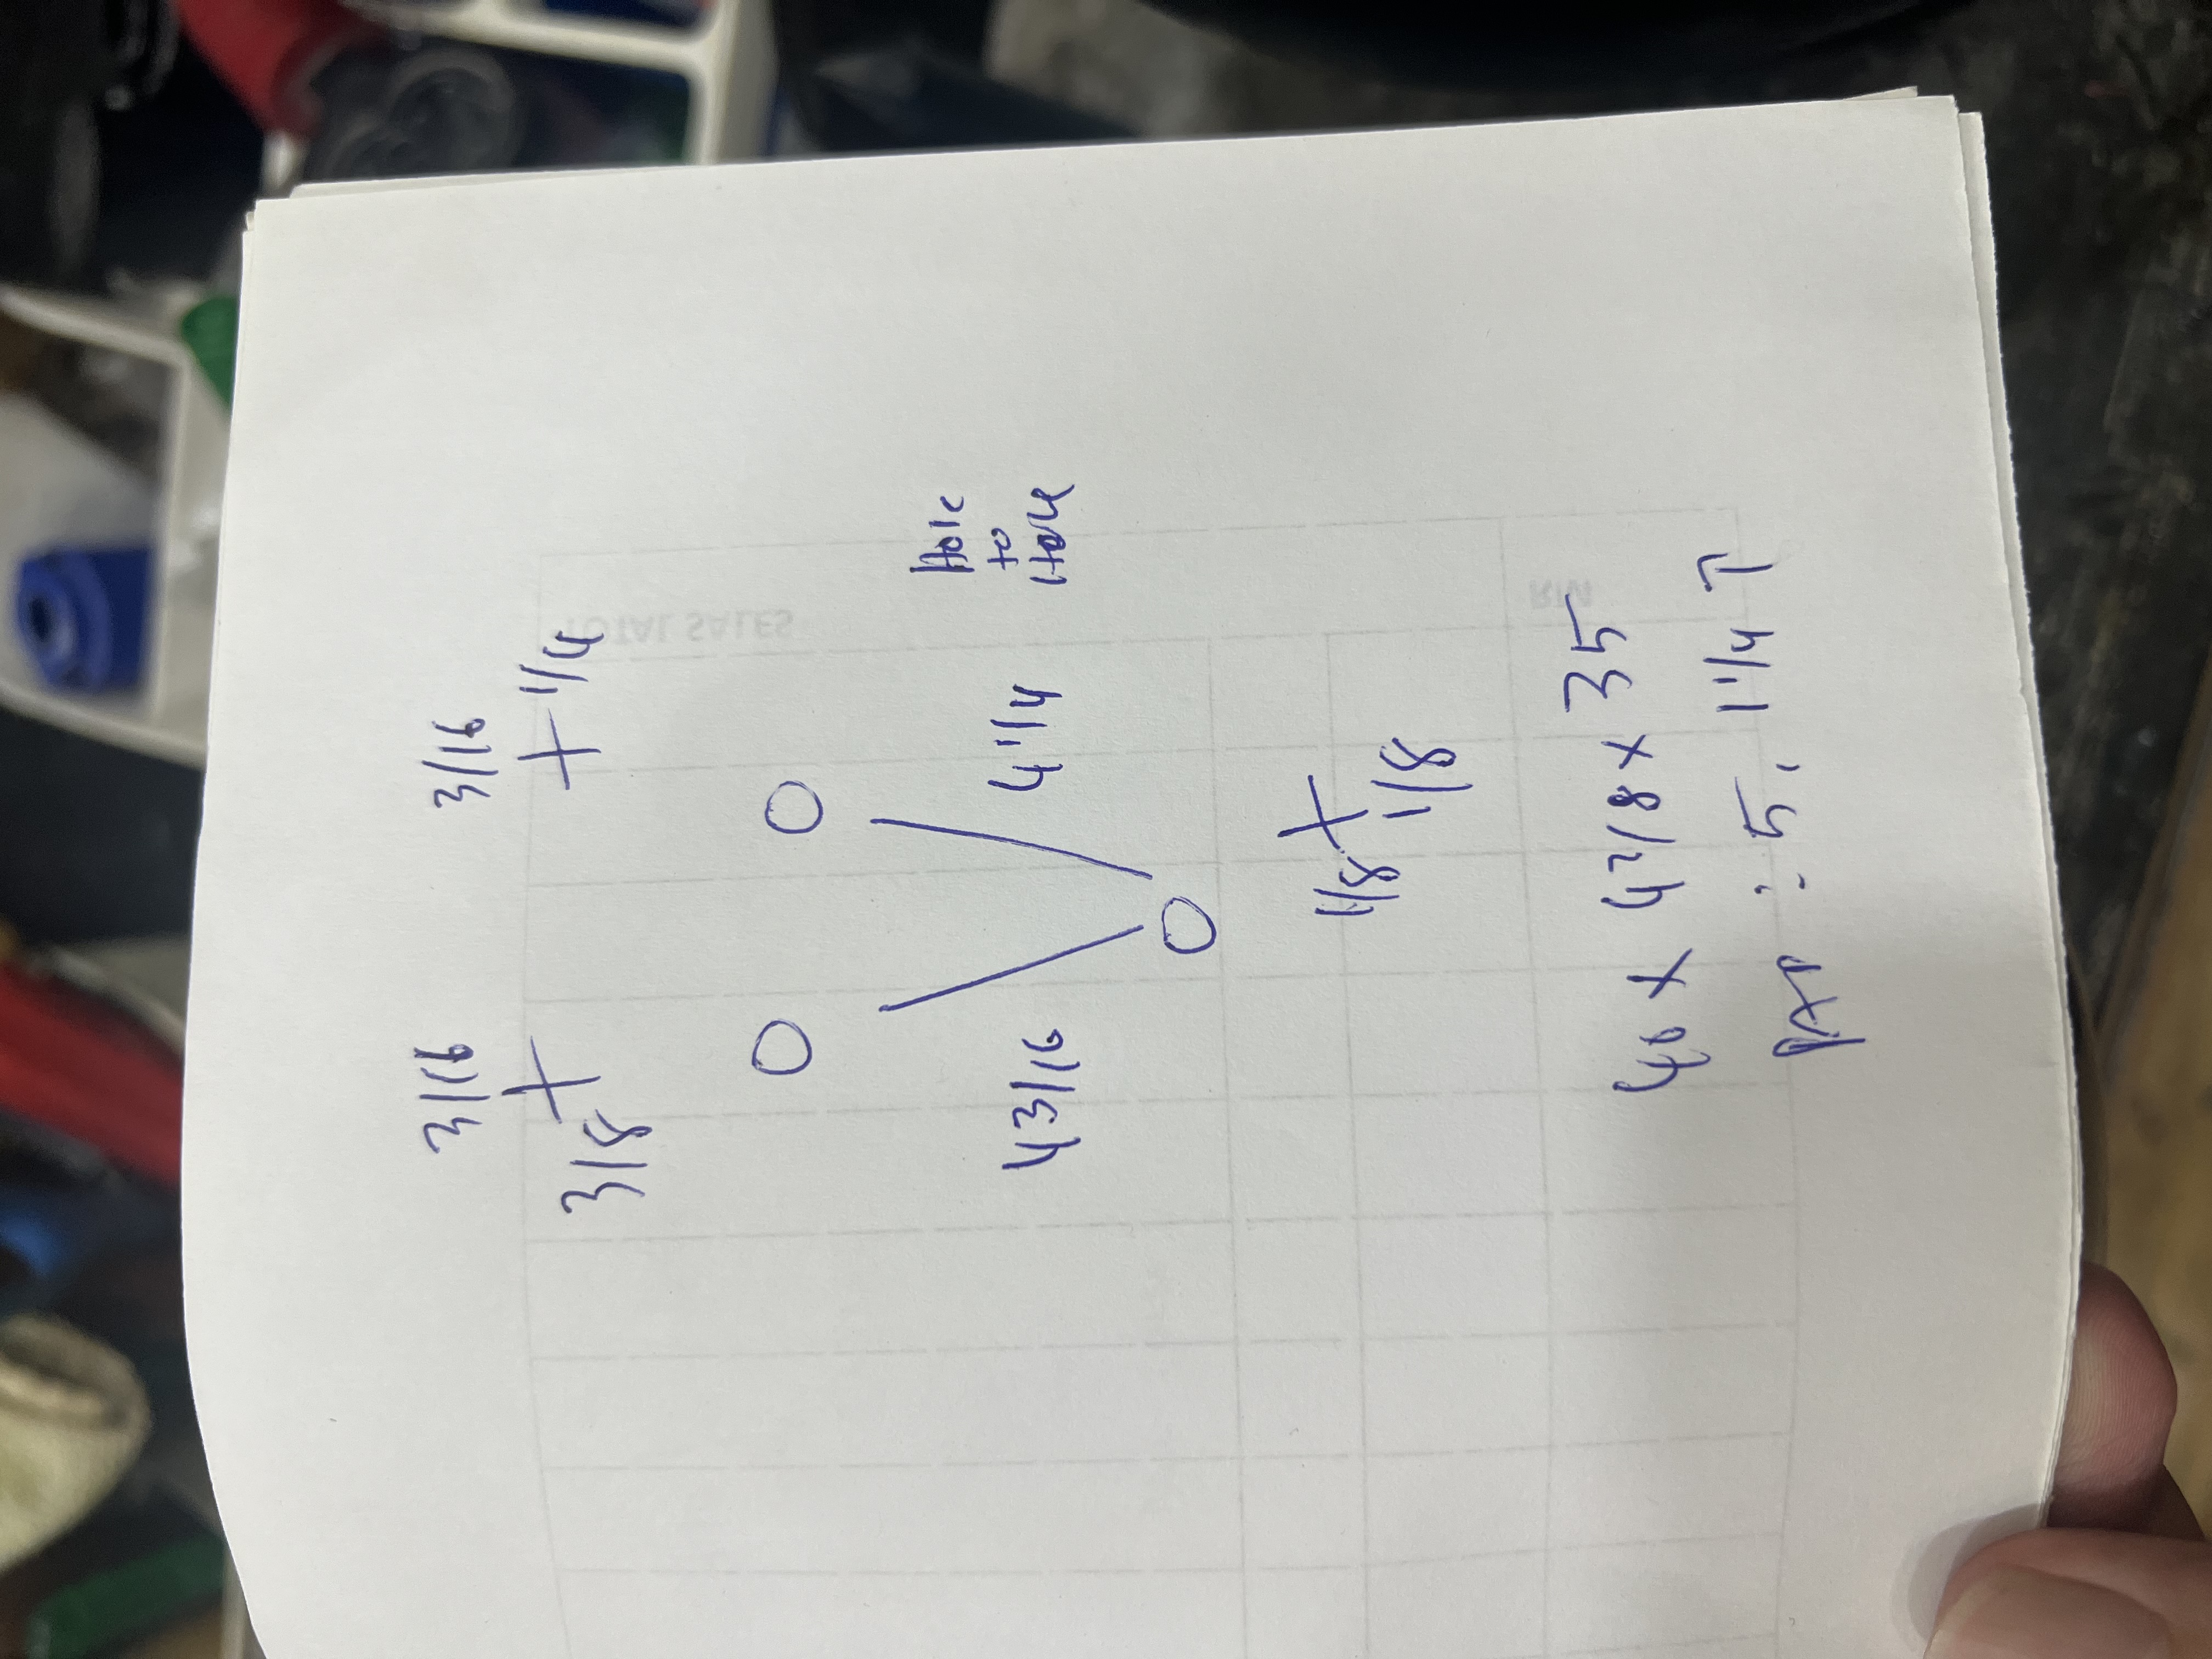 3/16 3/16
3/8 + + 1/4
O O
4 3/16 4 1/4 Hole
to
Hole
O
1/8 + 1/8
40 x 47/8 x 35
: 5, 1 1/4 T
TOTAL SALES